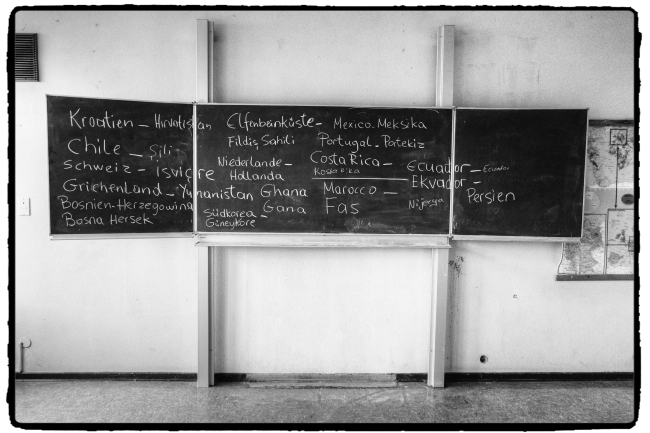 Kroatien - Hırvatistan
Chile - Şili
Schweiz - Isviçre
Griechenland - Yunanistan
Bosnien-Herzegowina
Bosna Hersek
Elfenbeinküste -
Fildiş Sahili
Niederlande -
Hollanda
Ghana
Gana
Südkorea -
Güneykore
Mexico - Meksika
Portugal - Potekiz
Costa Rica -
Kosta Rika
Marocco -
Fas
Ecuador - Ecuador
Ekvador -
Nijerya
Persien